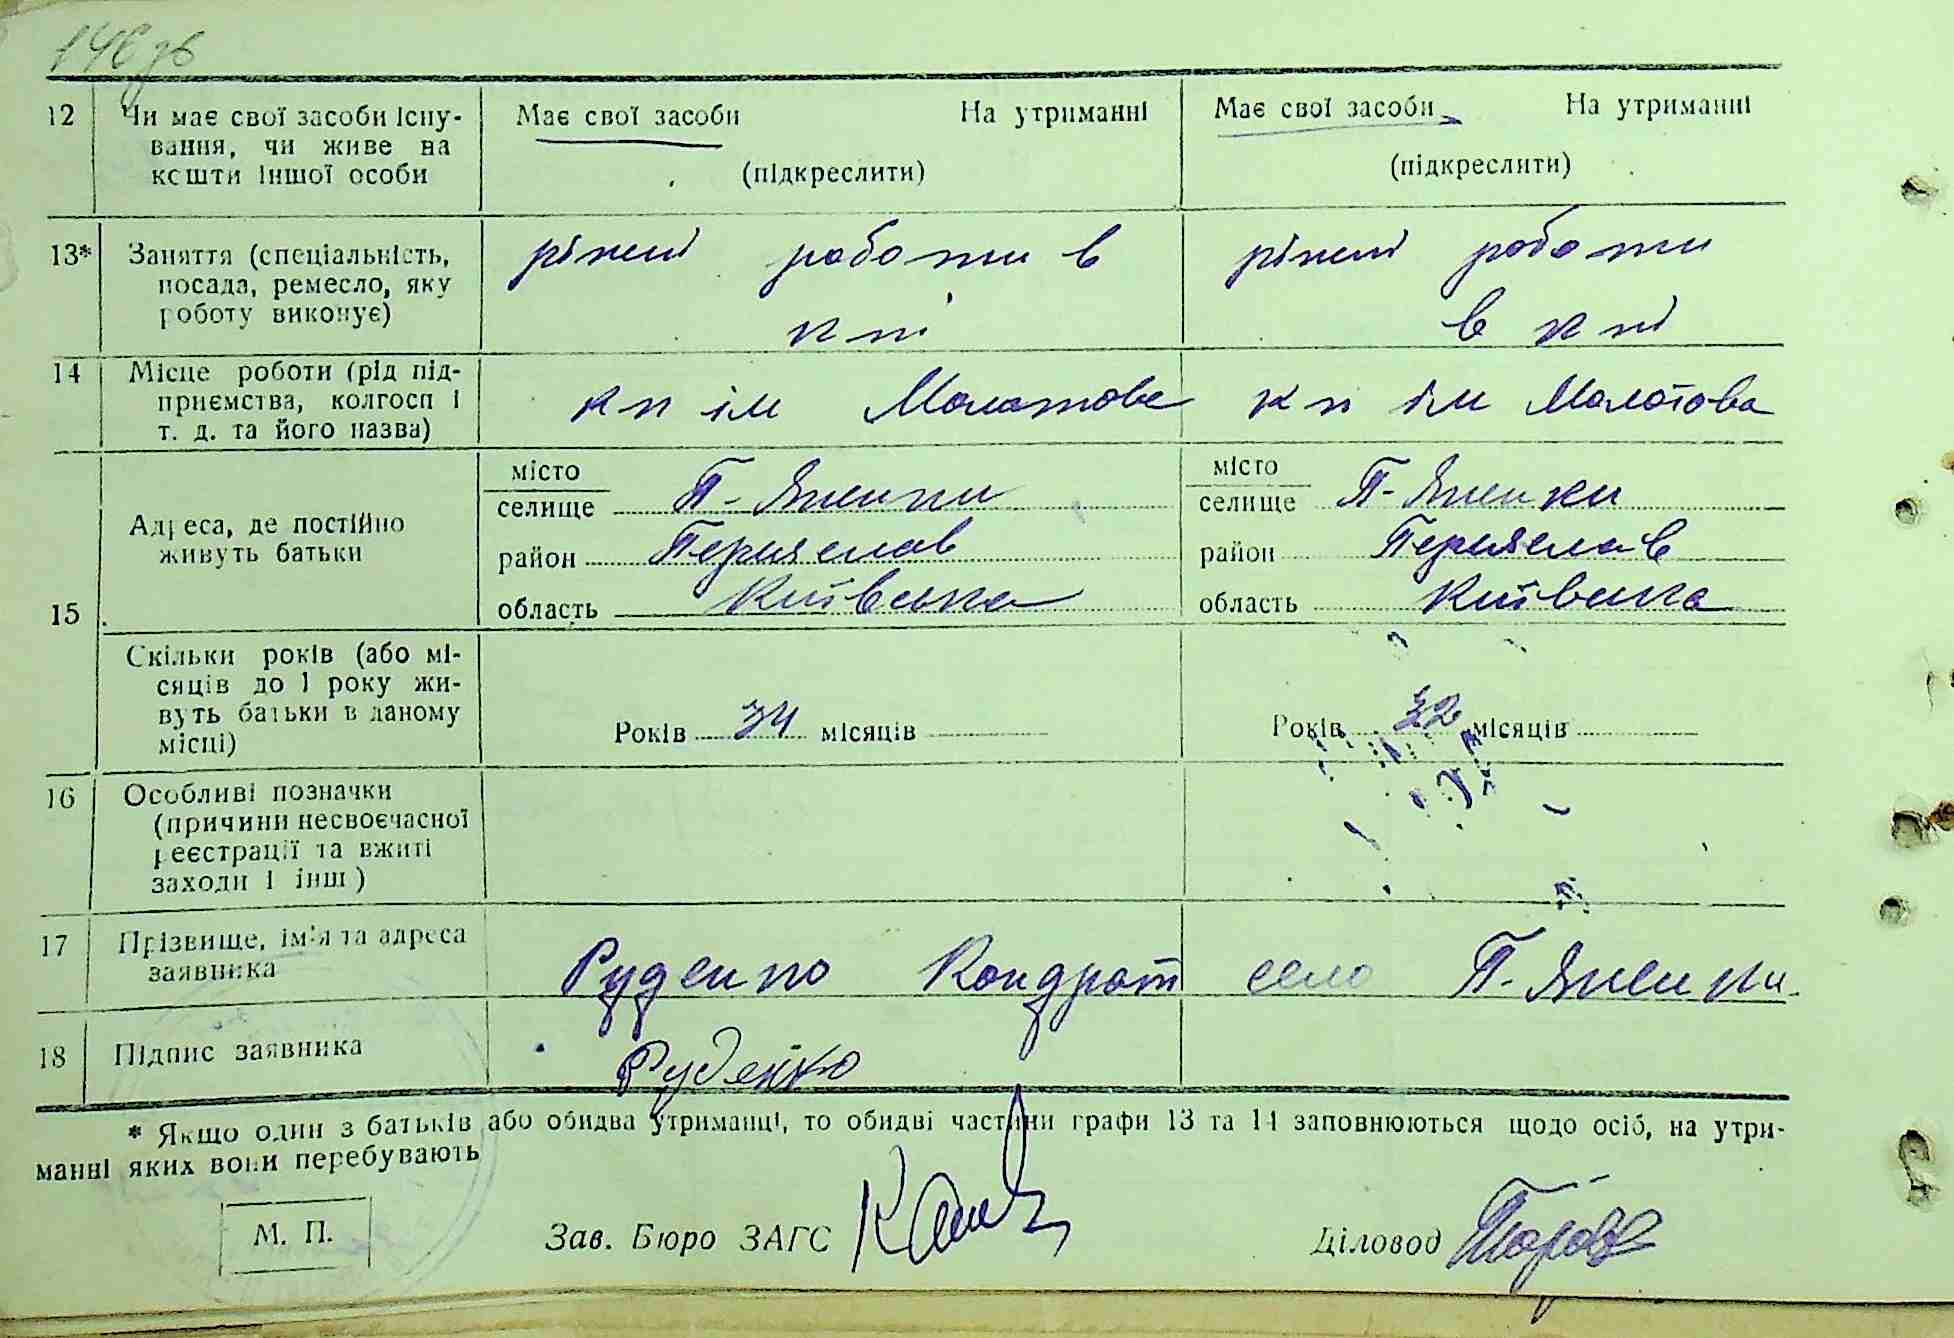 146 зв
12 Чи має свої засоби існу- Має свої засоби На утриманні Має свої засоби На утриманні
вання, чи живе на
кошти іншої особи (підкреслити) (підкреслити)
13* Заняття (спеціальність, ріжні роботи в ріжні роботи
посада, ремесло, яку
роботу виконує) к пі в к пі
14 Місце роботи (рід під-
приємства, колгосп і кп ім Молотова кп ім Молотова
т. д. та його назва)
місто місто
селище П-Яненки селище П-Яненки
Адреса, де постійно
живуть батьки район Переяслав район Переяслав
15 область Київська область Київська
Скільки років (або мі-
сяців до 1 року жи-
вуть батьки в даному Років 34 місяців Років 32 місяців
місці)
16 Особливі позначки
(причини несвоєчасної
реєстрації та вжиті
заходи і інш)
17 Прізвище, ім'я та адреса
заявника Руденко Кондрат село П-Яненки.
18 Підпис заявника Руденко
* Якщо один з батьків або обидва утриманці, то обидві частини графи 13 та 14 заповнюються щодо осіб, на утри-
манні яких вони перебувають
М. П. Зав. Бюро ЗАГС Діловод